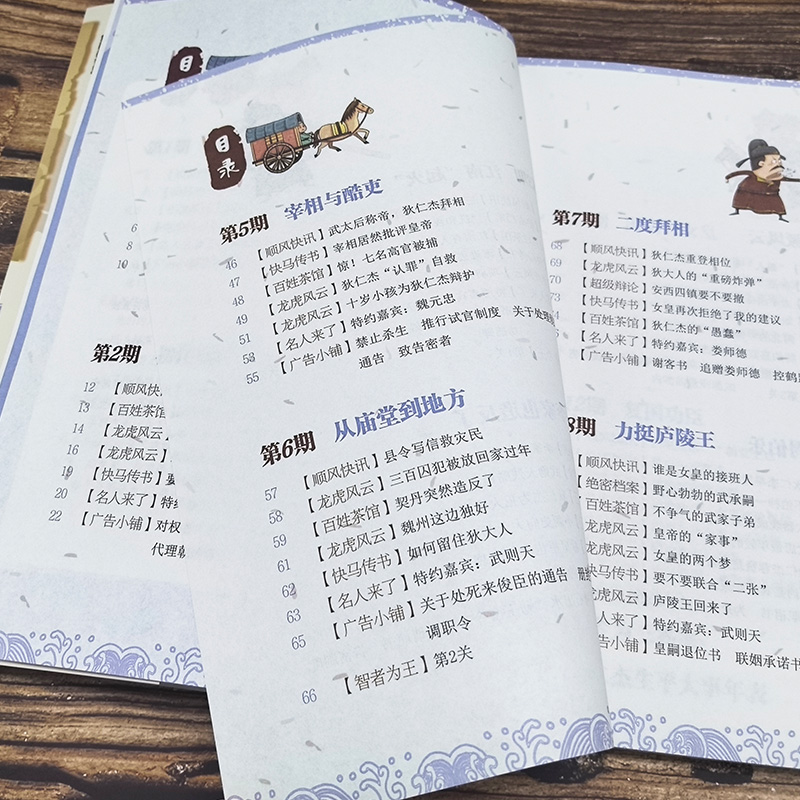 目
6
8
10
第2期
12 【顺风快
13 【百姓茶馆
14 【龙虎风云】
16 【龙虎风云】
19 【快马传书】
20 【名人来了】特约
22 【广告小铺】对权
代理
目录
第5期 宰相与酷吏
46 【顺风快讯】武太后称帝，狄仁杰拜相
47 【快马传书】宰相居然批评皇帝
48 【百姓茶馆】惊！七名高官被捕
49 【龙虎风云】狄仁杰“认罪”自救
51 【龙虎风云】十岁小孩为狄仁杰辩护
53 【名人来了】特约嘉宾：魏元忠
55 【广告小铺】禁止杀生 推行试官制度 关于处理
通告 致告密者
第6期 从庙堂到地方
57 【顺风快讯】县令写信救灾民
58 【龙虎风云】三百囚犯被放回家过年
59 【百姓茶馆】契丹突然造反了
61 【龙虎风云】魏州这边独好
62 【快马传书】如何留住狄大人
63 【名人来了】特约嘉宾：武则天
65 【广告小铺】关于处死来俊臣的通告
调职令
66 【智者为王】第2关
第7期 二度拜相
68 【顺风快讯】狄仁杰重登相位
69 【龙虎风云】狄大人的“重磅炸弹”
70 【超级辩论】安西四镇要不要撤
【快马传书】女皇再次拒绝了我的建议
【百姓茶馆】狄仁杰的“愚蠢”
【名人来了】特约嘉宾：娄师德
【广告小铺】谢客书 追赠娄师德 控鹤
8期 力挺庐陵王
【顺风快讯】谁是女皇的接班人
【绝密档案】野心勃勃的武承嗣
百姓茶馆】不争气的武家子弟
龙虎风云】皇帝的“家事”
龙虎风云】女皇的两个梦
快马传书】要不要联合“二张”
龙虎风云】庐陵王回来了
名人来了】特约嘉宾：武则天
广告小铺】皇嗣退位书 联姻承诺书